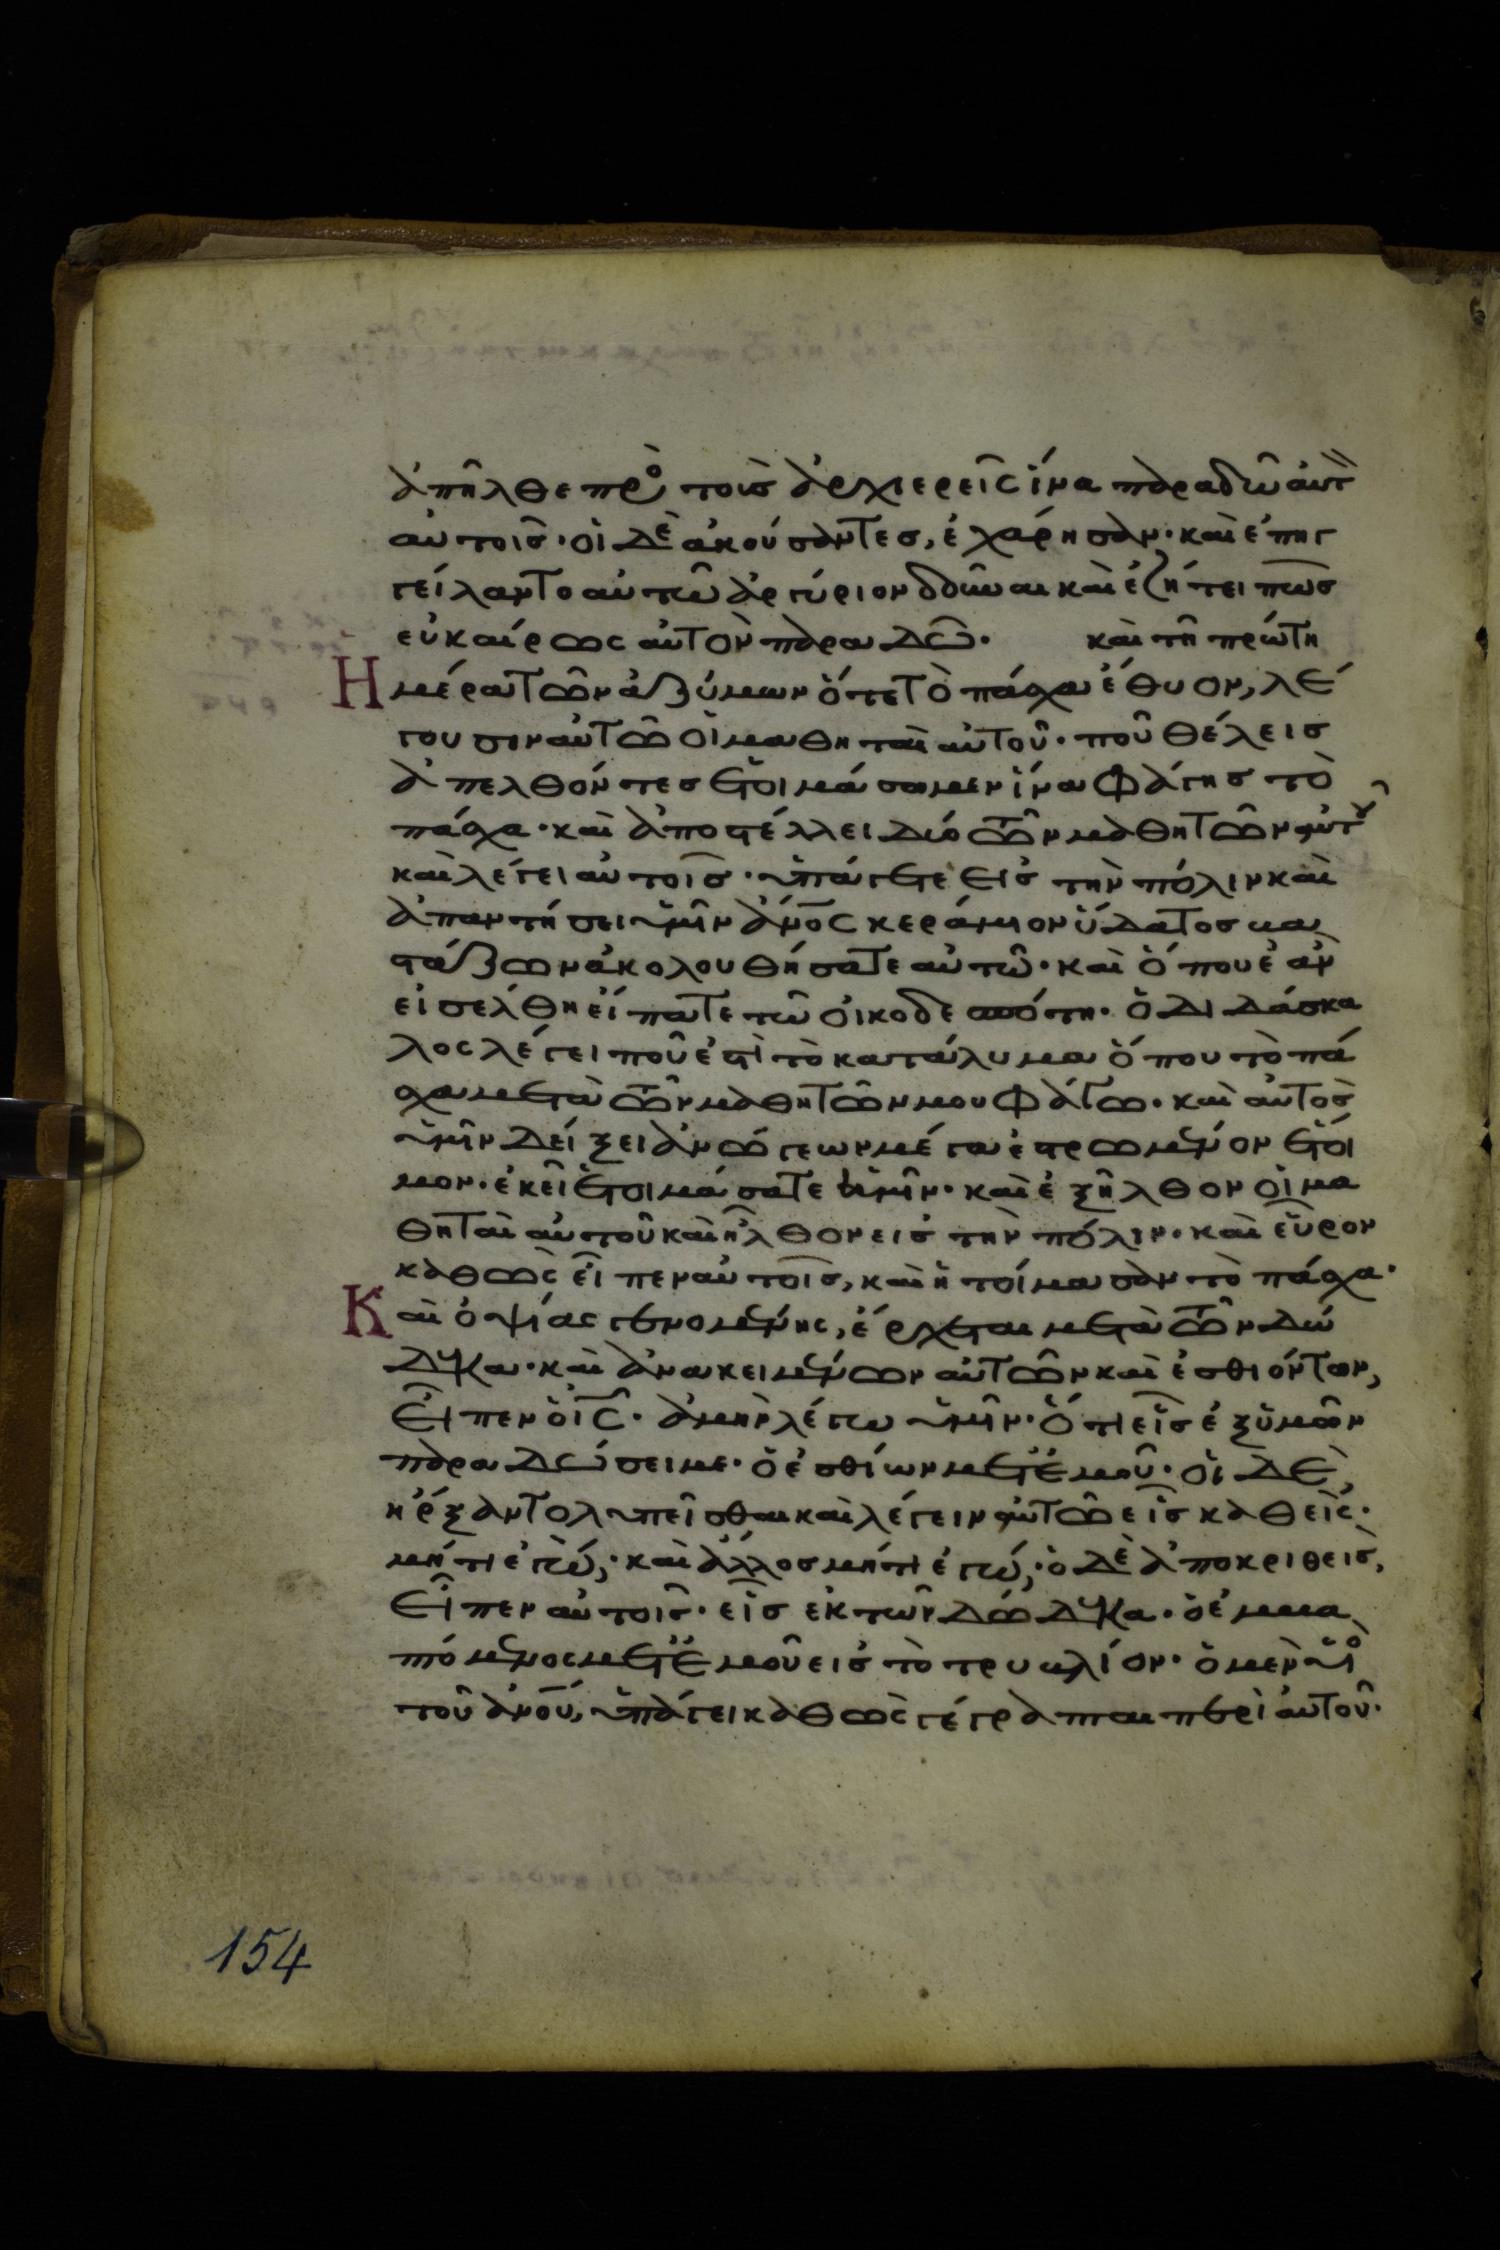 ἀπῆλθε πρὸς τοὺς ἀρχιερεῖς ἵνα παραδῶ αὐτ
αὐτοῖς· οἱ δὲ ἀκούσαντες, ἐχάρησαν· καὶ ἐπηγ
γείλαντο αὐτῶ ἀργύριον δοῦναι καὶ ἐζήτει πῶς
εὐκαίρως αὐτὸν παραδῶ· καὶ τῆ πρώτη
Ἡμέρα τῶν ἀζύμων ὅτε τὸ πάσχα ἔθυον, λέ
γουσιν αὐτῶ οἱ μαθηταὶ αὐτοῦ· ποῦ θέλεις
ἀπελθόντες ἑτοιμάσωμεν ἵνα φάγης τὸ
πάσχα· καὶ ἀποστέλλει δύο τῶν μαθητῶν αὐτοῦ
καὶ λέγει αὐτοῖς· ὑπάγετε εἰς τὴν πόλιν καὶ
ἀπαντήσει ὑμῖν ἄνος κεράμιον ὕδατος βα
στάζων ἀκολουθήσατε αὐτῶ· καὶ ὅπου ἐὰν
εἰσέλθη εἴπατε τῶ οἰκοδεσπότη· ὁ διδάσκα
λος λέγει ποῦ ἐστὶ τὸ κατάλυμα ὅπου τὸ πά
σχα μετὰ τῶν μαθητῶν μου φάγω· καὶ αὐτὸς
ὑμῖν δείξει ἀνώγεων μέγα ἐστρωμένον ἕτοι
μον· ἐκεῖ ἑτοιμάσατε ἡμῖν· καὶ ἐξῆλθον οἱ μα
θηταὶ αὐτοῦ καὶ ἦλθον εἰς τὴν πόλιν· καὶ εὗρον
καθὼς εἶπεν αὐτοῖς, καὶ ἡτοίμασαν τὸ πάσχα·
Καὶ ὀψίας γενομένης, ἔρχεται μετὰ τῶν δώ
δεκα· καὶ ἀνακειμένων αὐτῶν καὶ ἐσθιόντων,
εἶπεν ὁ ις· ἀμὴν λέγω ὑμῖν· ὅτι εἷς ἐξ ὑμῶν
παραδώσει με· ὁ ἐσθίων μετ' ἐμοῦ· οἱ δὲ,
ἤρξαντο λυπεῖσθαι καὶ λέγειν αὐτῶ εἷς καθεὶς·
μήτι ἐγώ; καὶ ἄλλος μήτι ἐγώ; ὁ δὲ ἀποκριθεὶς,
εἶπεν αὐτοῖς· εἷς ἐκ τῶν δώδεκα· ὁ ἐμβα
πτόμενος μετ' ἐμοῦ εἰς τὸ τρυβλίον· ὁ μὲν υἱὸς
τοῦ ἀνου, ὑπάγει καθὼς γέγραπται περὶ αὐτοῦ·
154